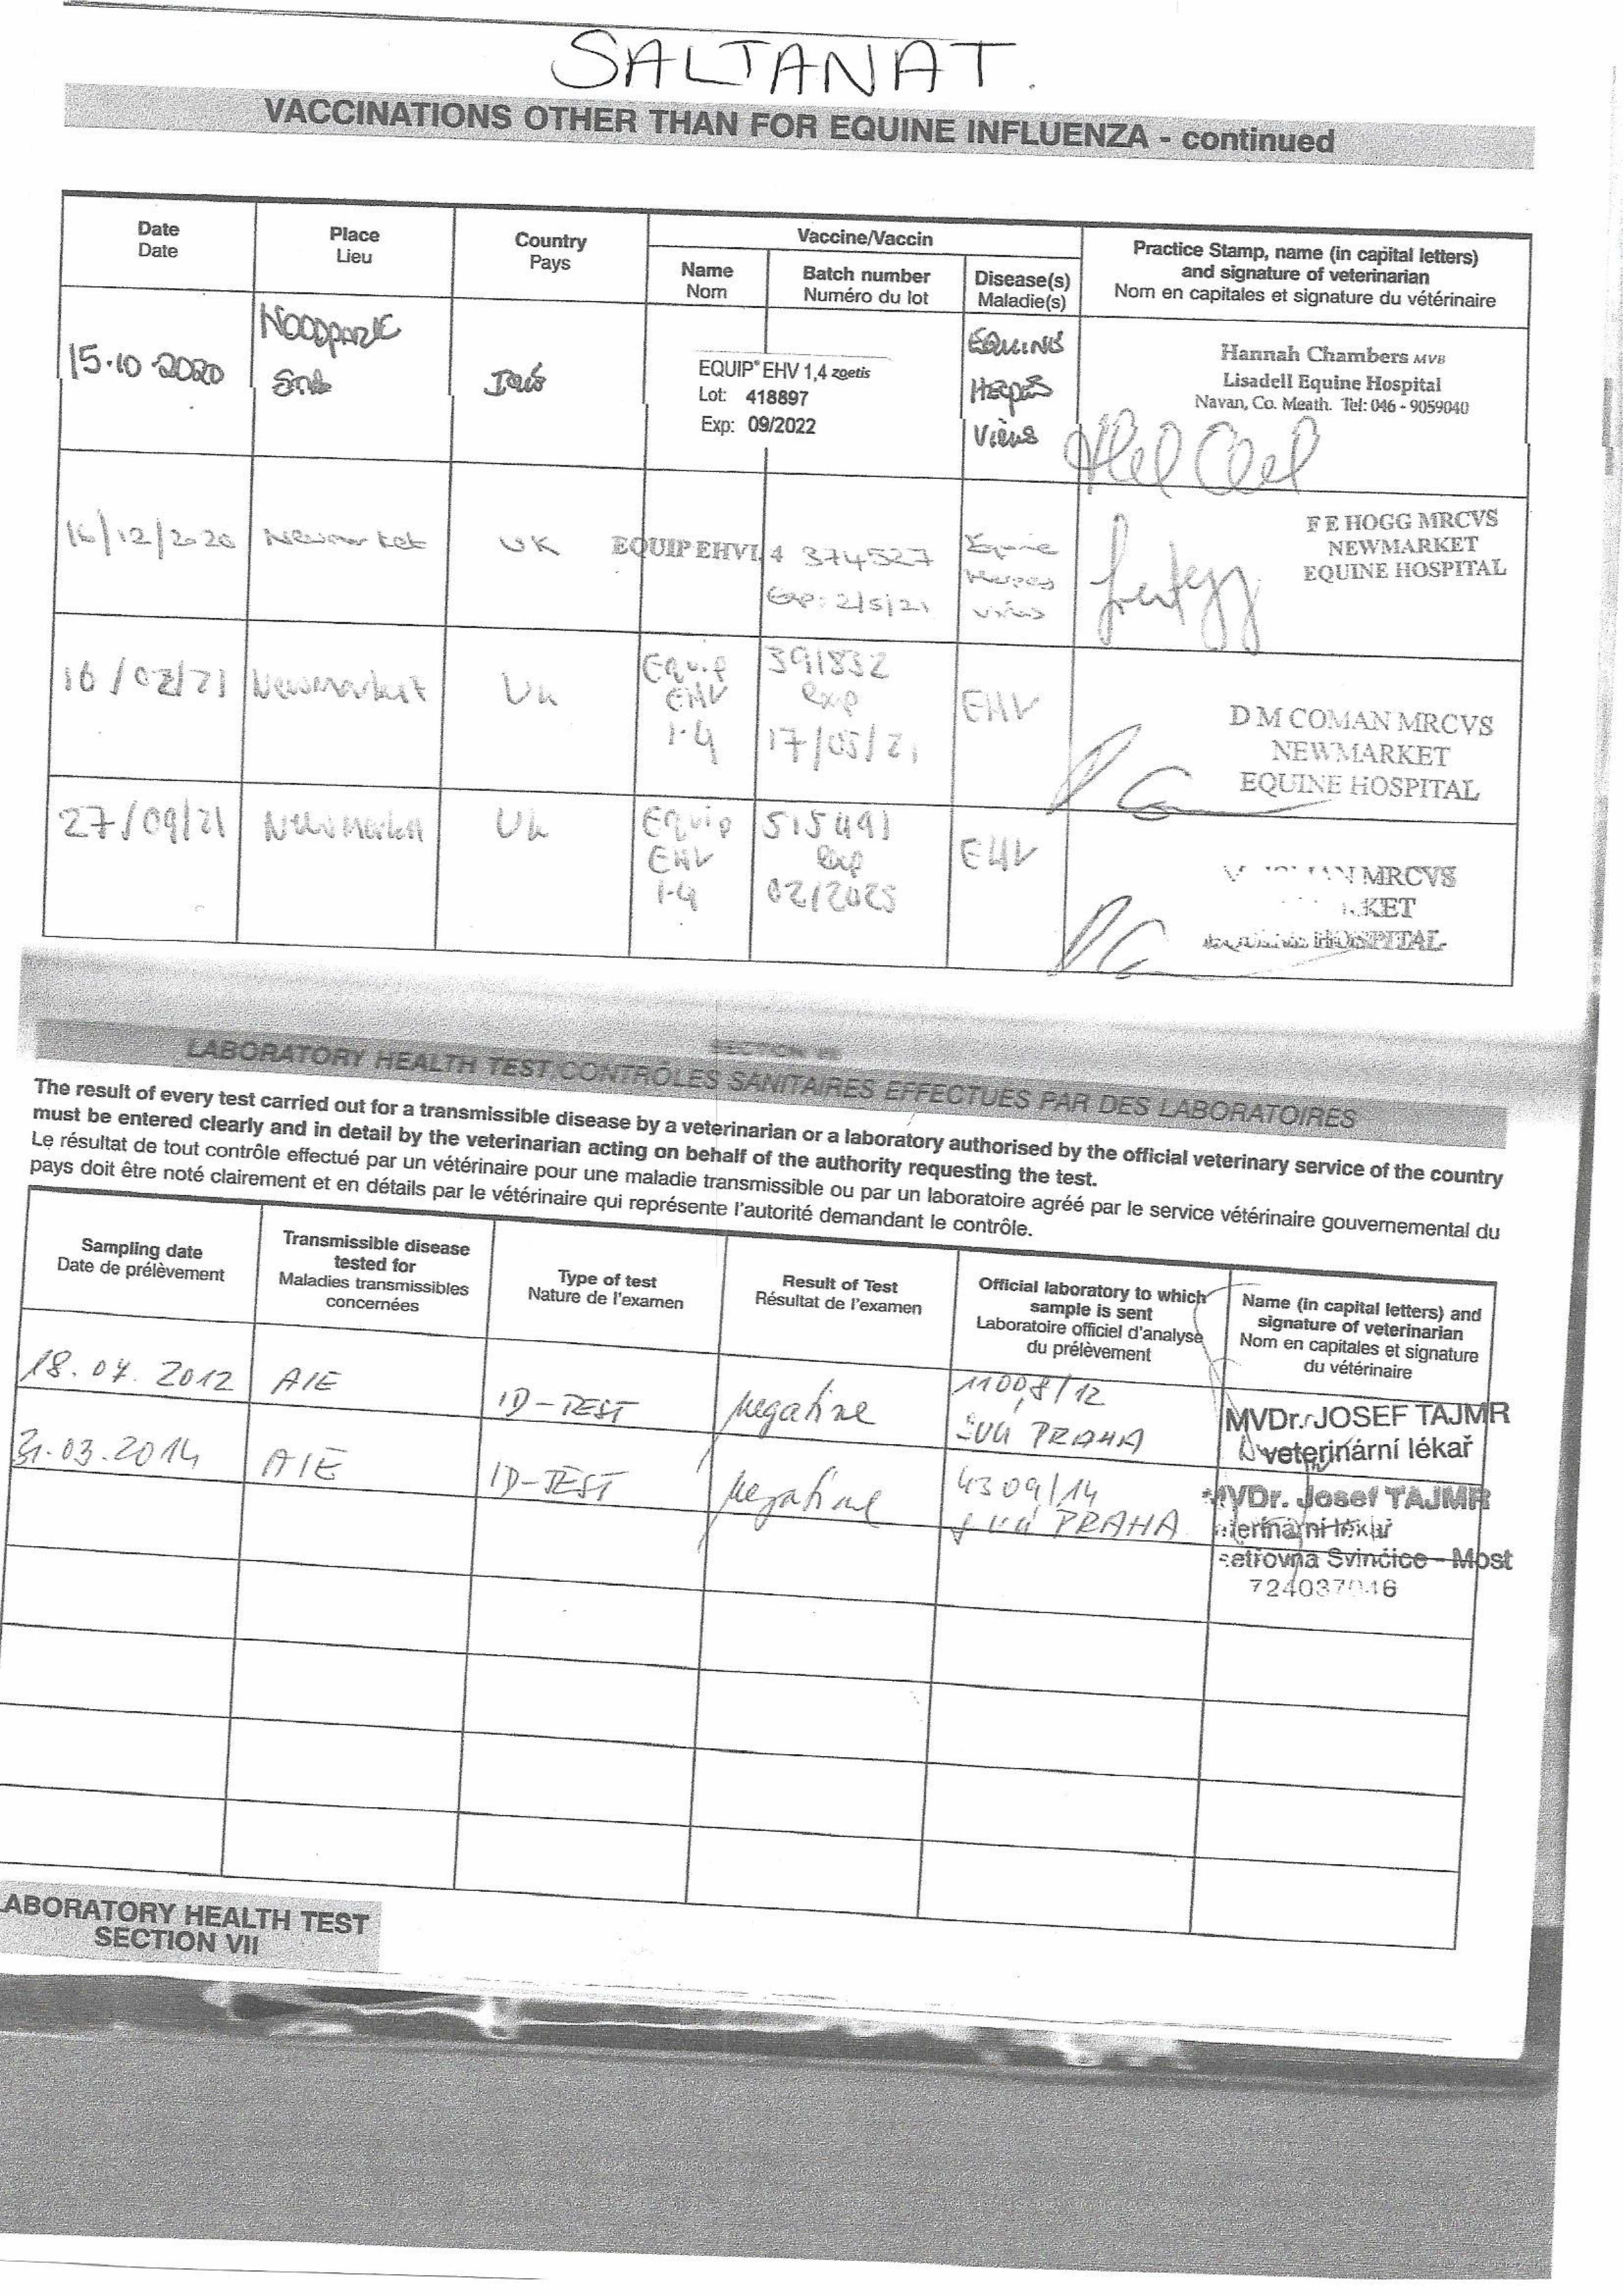 SALTANAT.
VACCINATIONS OTHER THAN FOR EQUINE INFLUENZA - continued
Date
Date
Place
Lieu
Country
Pays
Vaccine/Vaccin
Name
Nom
Batch number
Numéro du lot
Disease(s)
Maladie(s)
Practice Stamp, name (in capital letters)
and signature of veterinarian
Nom en capitales et signature du vétérinaire
15.10.2020
EQUIP® EHV 1,4 zoetis
Lot: 418897
Exp: 09/2022
Herpes
Hannah Chambers MVB
Lisadell Equine Hospital
Navan, Co. Meath. Tel: 046 - 9059040
16/12/2020
Newmarket
UK
EQUIP EHV1,4
374527
Exp: 2/5/21
Equine
Herpes
virus
F E HOGG MRCVS
NEWMARKET
EQUINE HOSPITAL
16/02/21
Newmarket
UK
Equip
EHV
1-4
391832
exp
17/05/21
EHV
D M COMAN MRCVS
NEWMARKET
EQUINE HOSPITAL
27/09/21
Newmarket
UK
Equip
EHV
1-4
515491
exp
EHV
MRCVS
HOSPITAL
SECTION VII
LABORATORY HEALTH TEST/CONTRÔLES SANITAIRES EFFECTUÉS PAR DES LABORATOIRES
The result of every test carried out for a transmissible disease by a veterinarian or a laboratory authorised by the official veterinary service of the country
must be entered clearly and in detail by the veterinarian acting on behalf of the authority requesting the test.
Le résultat de tout contrôle effectué par un vétérinaire pour une maladie transmissible ou par un laboratoire agréé par le service vétérinaire gouvernemental du
pays doit être noté clairement et en détails par le vétérinaire qui représente l'autorité demandant le contrôle.
Sampling date
Date de prélèvement
Transmissible disease
tested for
Maladies transmissibles
concernées
Type of test
Nature de l'examen
Result of Test
Résultat de l'examen
Official laboratory to which
sample is sent
Laboratoire officiel d'analyse
du prélèvement
Name (in capital letters) and
signature of veterinarian
Nom en capitales et signature
du vétérinaire
18.07.2012
AIE
ID-TEST
negative
11008/12
SVÚ PRAHA
MVDr. JOSEF TAJMR
veterinární lékař
31.03.2014
AIE
ID-TEST
negative
4309/14
SVÚ PRAHA
MVDr. Josef TAJMR
Svinčice - Most
LABORATORY HEALTH TEST
SECTION VII